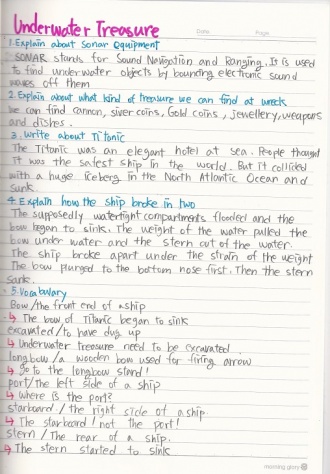 Underwater Treasure
Date. Page.
1. Explain about Sonar Equipment
SONAR stands for Sound Navigation and Ranging. It is used
to find underwater objects by bounding electronic sound
waves off them
2. Explain about what kind of treasure we can find at wreck
We can find cannon, siver coins, Gold coins, jewellery, weapons
and dishes.
3. Write about Titanic
The Titanic was an elegant hotel at sea. People thought
it was the safest ship in the world. But it collided
with a huge iceberg in the North Atlantic Ocean and
sunk.
4. Explain how the ship broke in two
The supposedly watertight compartments flooded and the
bow began to sink. The weight of the water pulled the
bow under water and the stern out of the water.
The ship broke apart under the strain of the weight
The bow plunged to the bottom nose first. Then the stern
sank.
5. Vocabulary
Bow/the front end of a ship
↳ The bow of Titanic began to sink
excavated/to have dug up
↳ Underwater treasure need to be excavated.
longbow/a wooden bow used for firing arrow
↳ go to the longbow stand!
port/The left side of a ship
↳ where is the port?
starboard/the right side of a ship.
↳ The starboard! not the port!
stern/The rear of a ship.
↳ The stern started to sink
morning glory